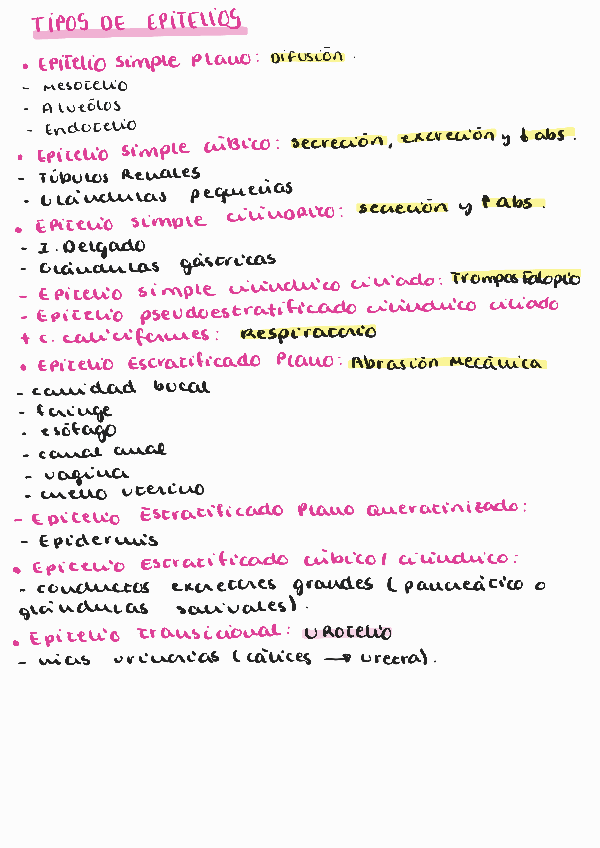 TIPOS DE EPITELIOS
• Epitelio simple plano: Difusión.
- Mesotelio
- Alvéolos
- Endotelio
• Epitelio simple cúbico: secreción, excreción y ↑ abs.
- Túbulos Renales
- Glándulas pequeñas
• Epitelio simple cilíndrico: secreción y ↑ abs.
- I. Delgado
- Glándulas gástricas
- Epitelio simple cilíndrico ciliado: Trompas Falopio
- Epitelio pseudoestratificado cilíndrico ciliado
+ c. caliciformes: Respiratorio
• Epitelio Estratificado Plano: Abrasión Mecánica
- cavidad bucal
- faringe
- esófago
- canal anal
- vagina
- cuello uterino
- Epitelio Estratificado Plano Queratinizado:
- Epidermis
• Epitelio Estratificado cúbico/ cilíndrico:
- conductos excretores grandes (pancreático o
glándulas salivales).
• Epitelio transicional: UROtelio
- vías urinarias (cálices → uretra).